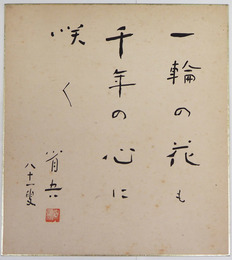 一輪の花も
千年の心に
咲く
八十一叟